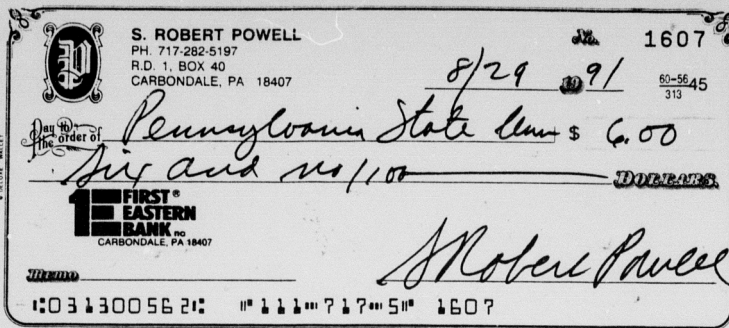 S. ROBERT POWELL
PH. 717-282-5197
R.D. 1, BOX 40
CARBONDALE, PA 18407
No. 1607
8/29 19 91
60-56 45
313
Pay to the order of Pennsylvania State Univ $ 6.00
Six and no/100 DOLLARS
1E FIRST® EASTERN BANK na
CARBONDALE, PA 18407
Memo
S Robert Powell
⑆031300562⑆ ⑈111⑉717⑉5⑈ 1607